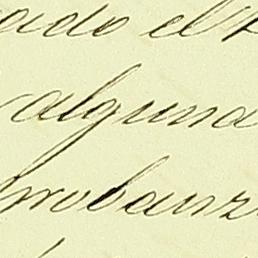 ado el
alguna
probanz